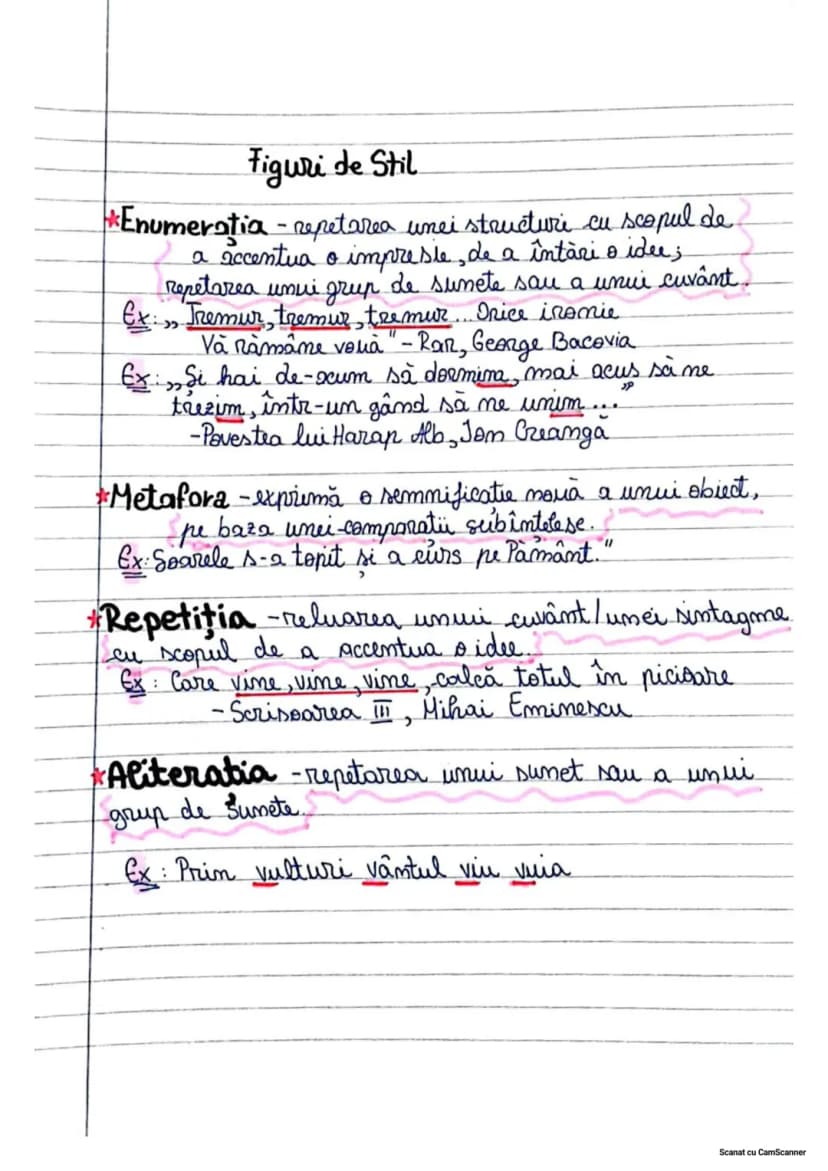 Figuri de Stil
*Enumerația - repetarea unei structuri cu scopul de
a accentua o impresie, de a întări o idee;
repetarea unui grup de sunete sau a unui cuvânt.
Ex: „ Tremur, tremur, tremur... Orice ironie
Vă rămâne vouă" - Rar, George Bacovia
Ex: „Si hai de-acum să dormim, mai acus să ne
trezim, într-un gând să ne unim ..."
-Povestea lui Harap Alb, Ion Creangă
*Metafora - exprimă o semnificatie nouă a unui obiect,
pe baza unei comparatii subîntelese.
Ex: Soarele s-a topit și a curs pe Pământ."
*Repetiția - reluarea unui cuvânt / unei sintagme
cu scopul de a accentua o idee.
Ex : Care vine, vine, vine, calcă totul în picioare
- Scrisoarea III, Mihai Eminescu
*Aliteratia - repetarea unui sunet sau a unui
grup de sunete.
Ex : Prin vulturi vântul viu vuia
Scanat cu CamScanner